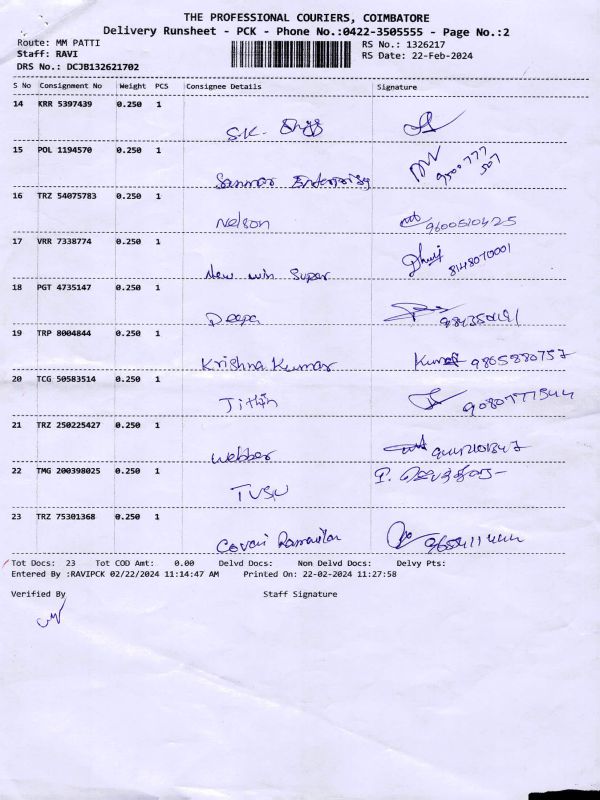 THE PROFESSIONAL COURIERS, COIMBATORE
Delivery Runsheet - PCK - Phone No.:0422-3505555 - Page No.:2
Route: MM PATTI
RS No.: 1326217
Staff: RAVI
RS Date: 22-Feb-2024
DRS No.: DCJB132621702
S No Consignment No Weight PCS Consignee Details Signature
14 KRR 5397439 0.250 1
S.K.
15 POL 1194570 0.250 1
9500777
507
Sanmar Enterprises
16 TRZ 54075783 0.250 1
Nelson 9600510425
17 VRR 7338774 0.250 1
8148070001
New win Super
18 PGT 4735147 0.250 1
Deepa
19 TRP 8004844 0.250 1
Krishna Kumar Kumar 9805880757
20 TCG 50583514 0.250 1
Jithin 9080777544
21 TRZ 250225427 0.250 1
Webber
22 TMG 200398025 0.250 1
TVSU
23 TRZ 75301368 0.250 1
Covai 9659411444
Tot Docs: 23 Tot COD Amt: 0.00 Delvd Docs: Non Delvd Docs: Delvy Pts:
Entered By :RAVIPCK 02/22/2024 11:14:47 AM Printed On: 22-02-2024 11:27:58
Verified By Staff Signature